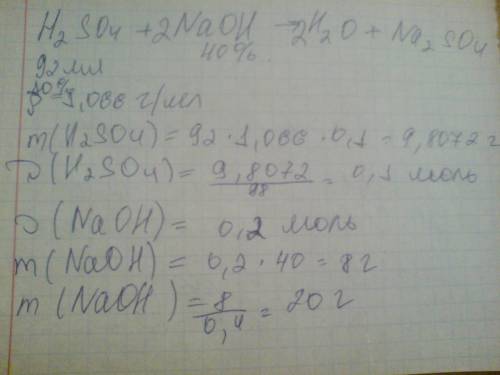 H₂SO₄ + 2NaOH → 2H₂O + Na₂SO₄
40%.
92 мл
10%
ρ = 1,066 г/мл
m(H₂SO₄) = 92 · 1,066 · 0,1 = 9,8072 г
υ(H₂SO₄) = 9,8072/98 = 0,1 моль
υ(NaOH) = 0,2 моль
m(NaOH) = 0,2 · 40 = 8 г
m(NaOH) = 8/0,4 = 20 г